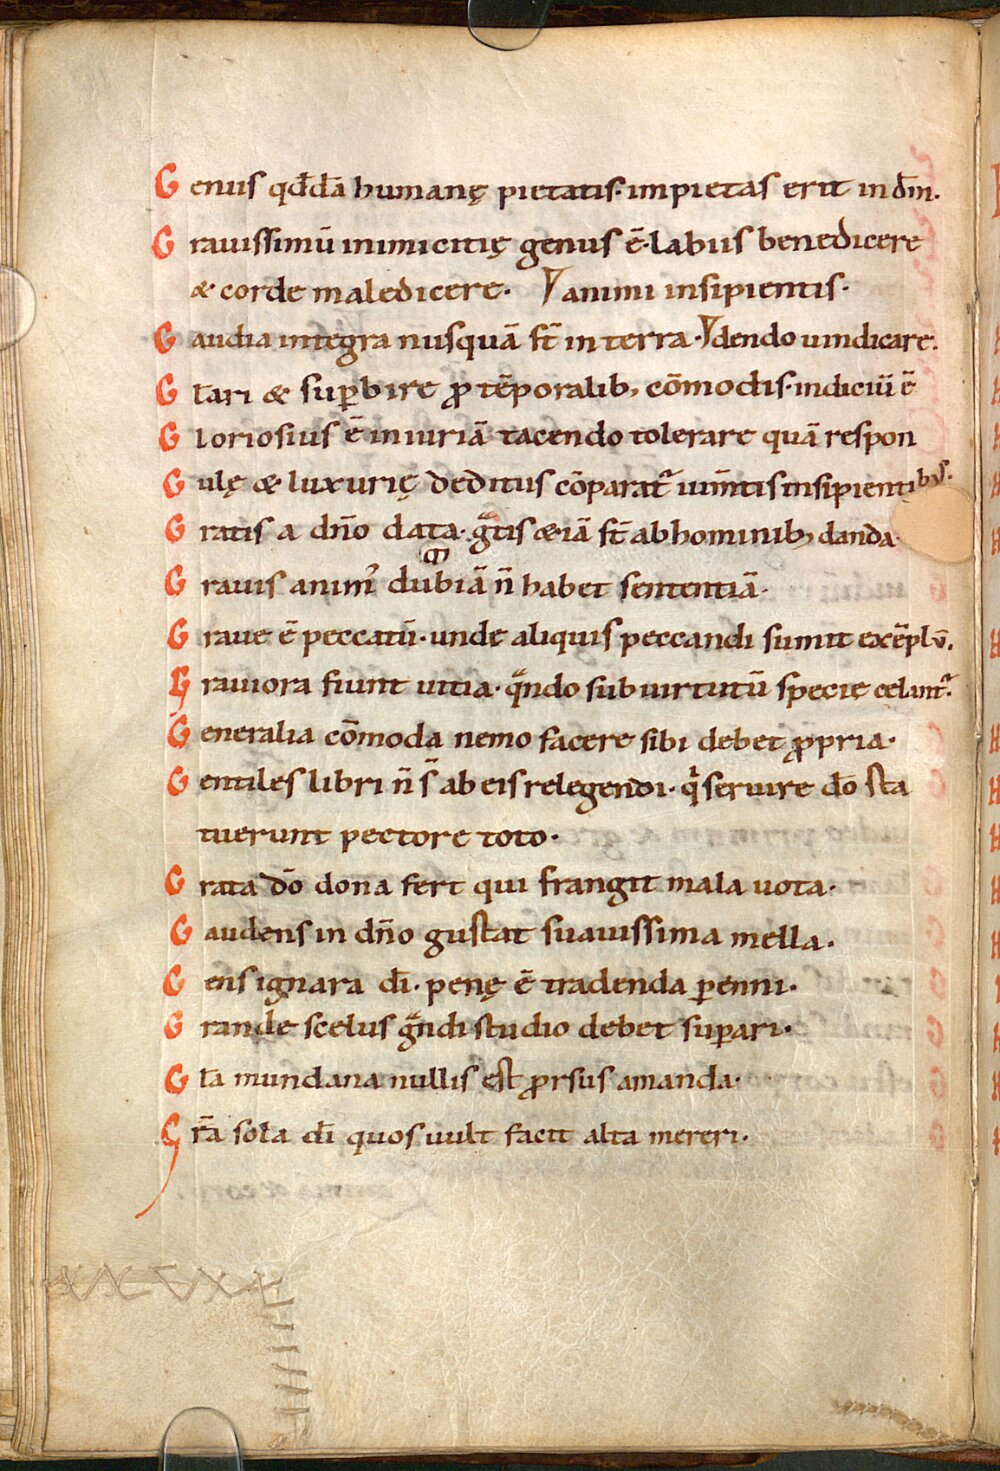 Genus qđdā humanę pietatis· impietas erit in dm̄.
Grauissimū inimicitię genus ē· labiis benedicere
& corde maledicere· animi insipientis·
Gaudia integra nusquā st̄ in terra· dendo uindicare.
Gl̄ari & sup̱bire ꝓ tēporalib; cōmodis· indiciū ē
Gloriosius ē iniuriā tacendo tolerare quā respon
Gulę & luxurię deditus cōparat᷑ iuḿtis insipientibus·
Gratis a dn̄o data· gͣtis & iā st̄ ab hominib; danda·
Grauis anim᷒ dubiā n̄ habet sententiā·
Graue ē peccatū· unde aliquis peccandi sumit exēplū.
Grauiora fiunt uitia· qͣndo sub uirtutū specie celant᷑·
Generalia cōmoda nemo facere sibi debet ꝓpria·
Gentiles libri n̄ s̄ ab eis relegendi· qͥ seruire dō sta
tuerunt pectore toto·
Grata dō dona fert qui frangit mala uota·
Gaudens in dn̄o gustat suauissima mella.
Gens ignara dī· penę ē tradenda ꝑenni·
Grande scelus gͣndi studio debet suꝑari·
Gl̄a mundana nullis est ꝓrsus amanda·
Gr̄a sola dī quos uult facit alta mereri·